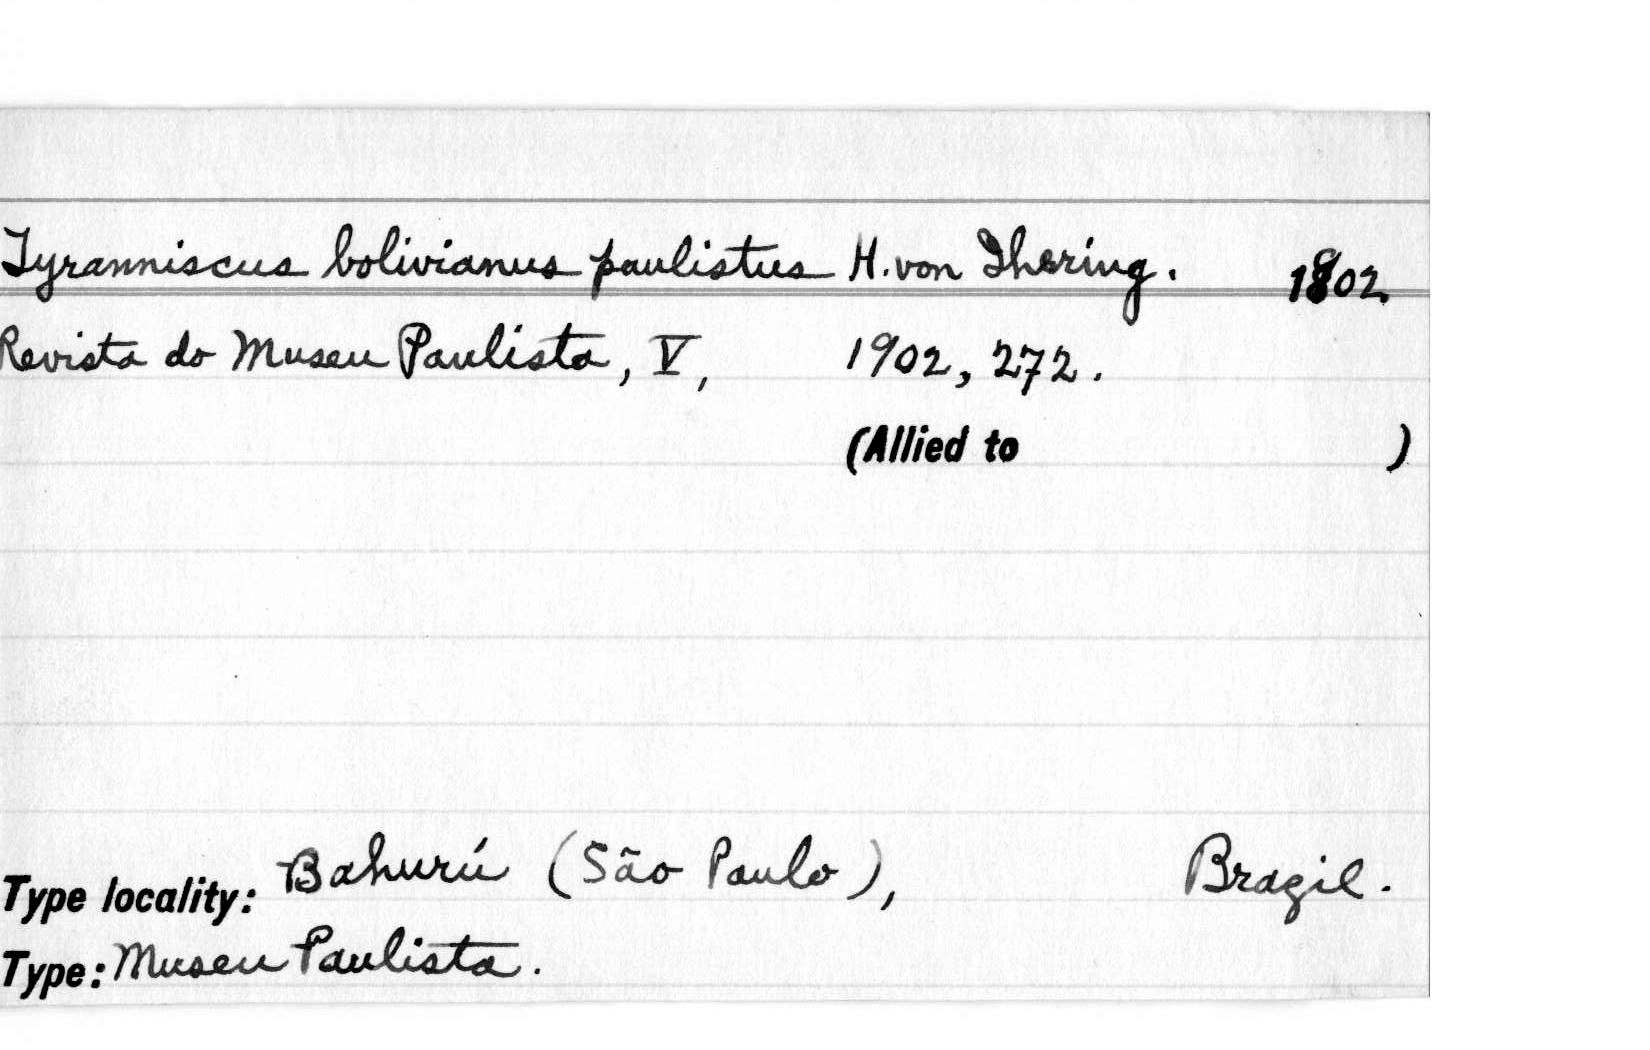 Tyranniscus bolivianus paulistus H. von Ihering. 1902.
Revista do Museu Paulista, V, 1902, 272.
(Allied to )
Type locality: Bahurú (São Paulo), Brazil.
Type: Museu Paulista.